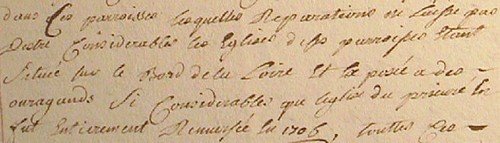 dans Ces parroisses lesquelles Reparations ne Laisse pas
Destre Considerables les Eglises desd parroisses Etant
Situé sur le Bord de la Loire Et Exposé a des
ouragands Si Considerables que leglise du prieuré
fut Entierement Renversée En 1706, touttes Ces